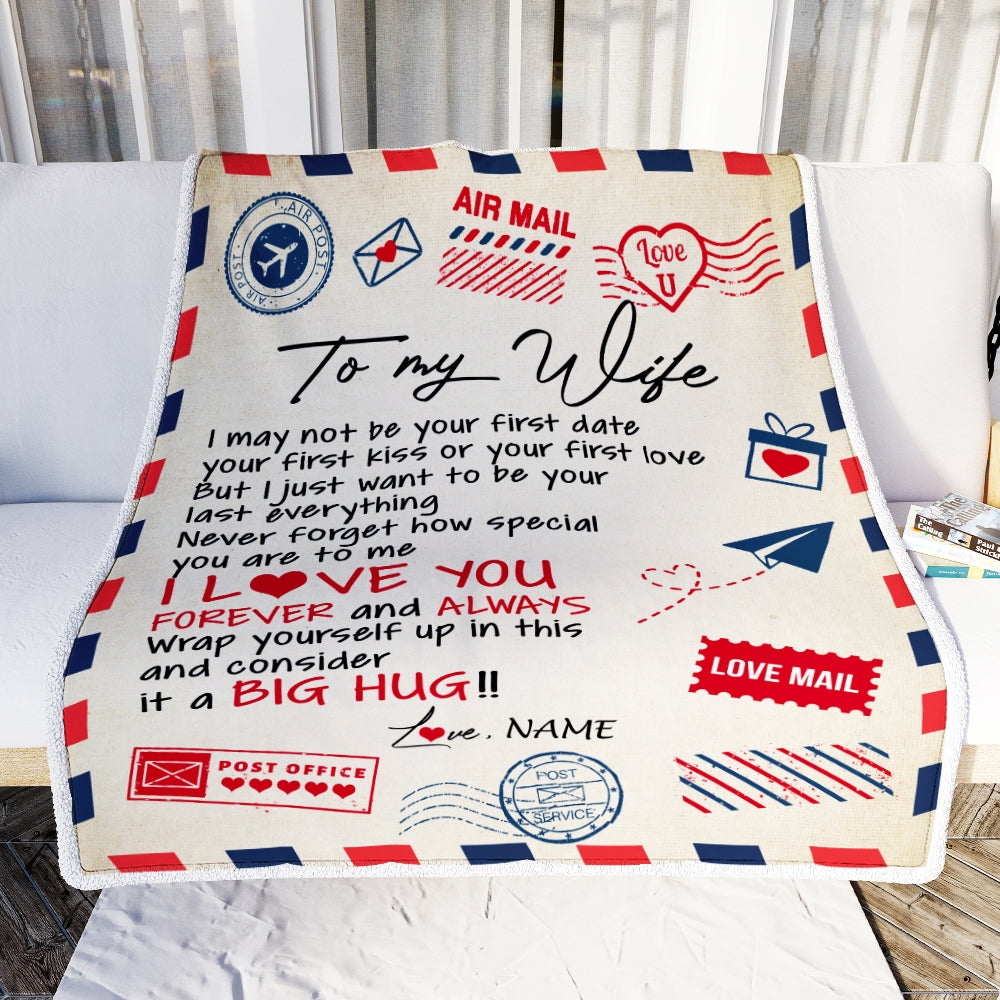 AIR POST
AIR POST
AIR POST
AIR MAIL
Love
U
To my Wife
I may not be your first date
your first kiss or your first love
But I just want to be your
last everything
Never forget how special
you are to me
I L VE YOU
FOREVER and ALWAYS
Wrap yourself up in this
and consider
it a BIG HUG!!
LOVE MAIL
L ve, NAME
POST OFFICE
POST
SERVICE
The
Calling
Paul